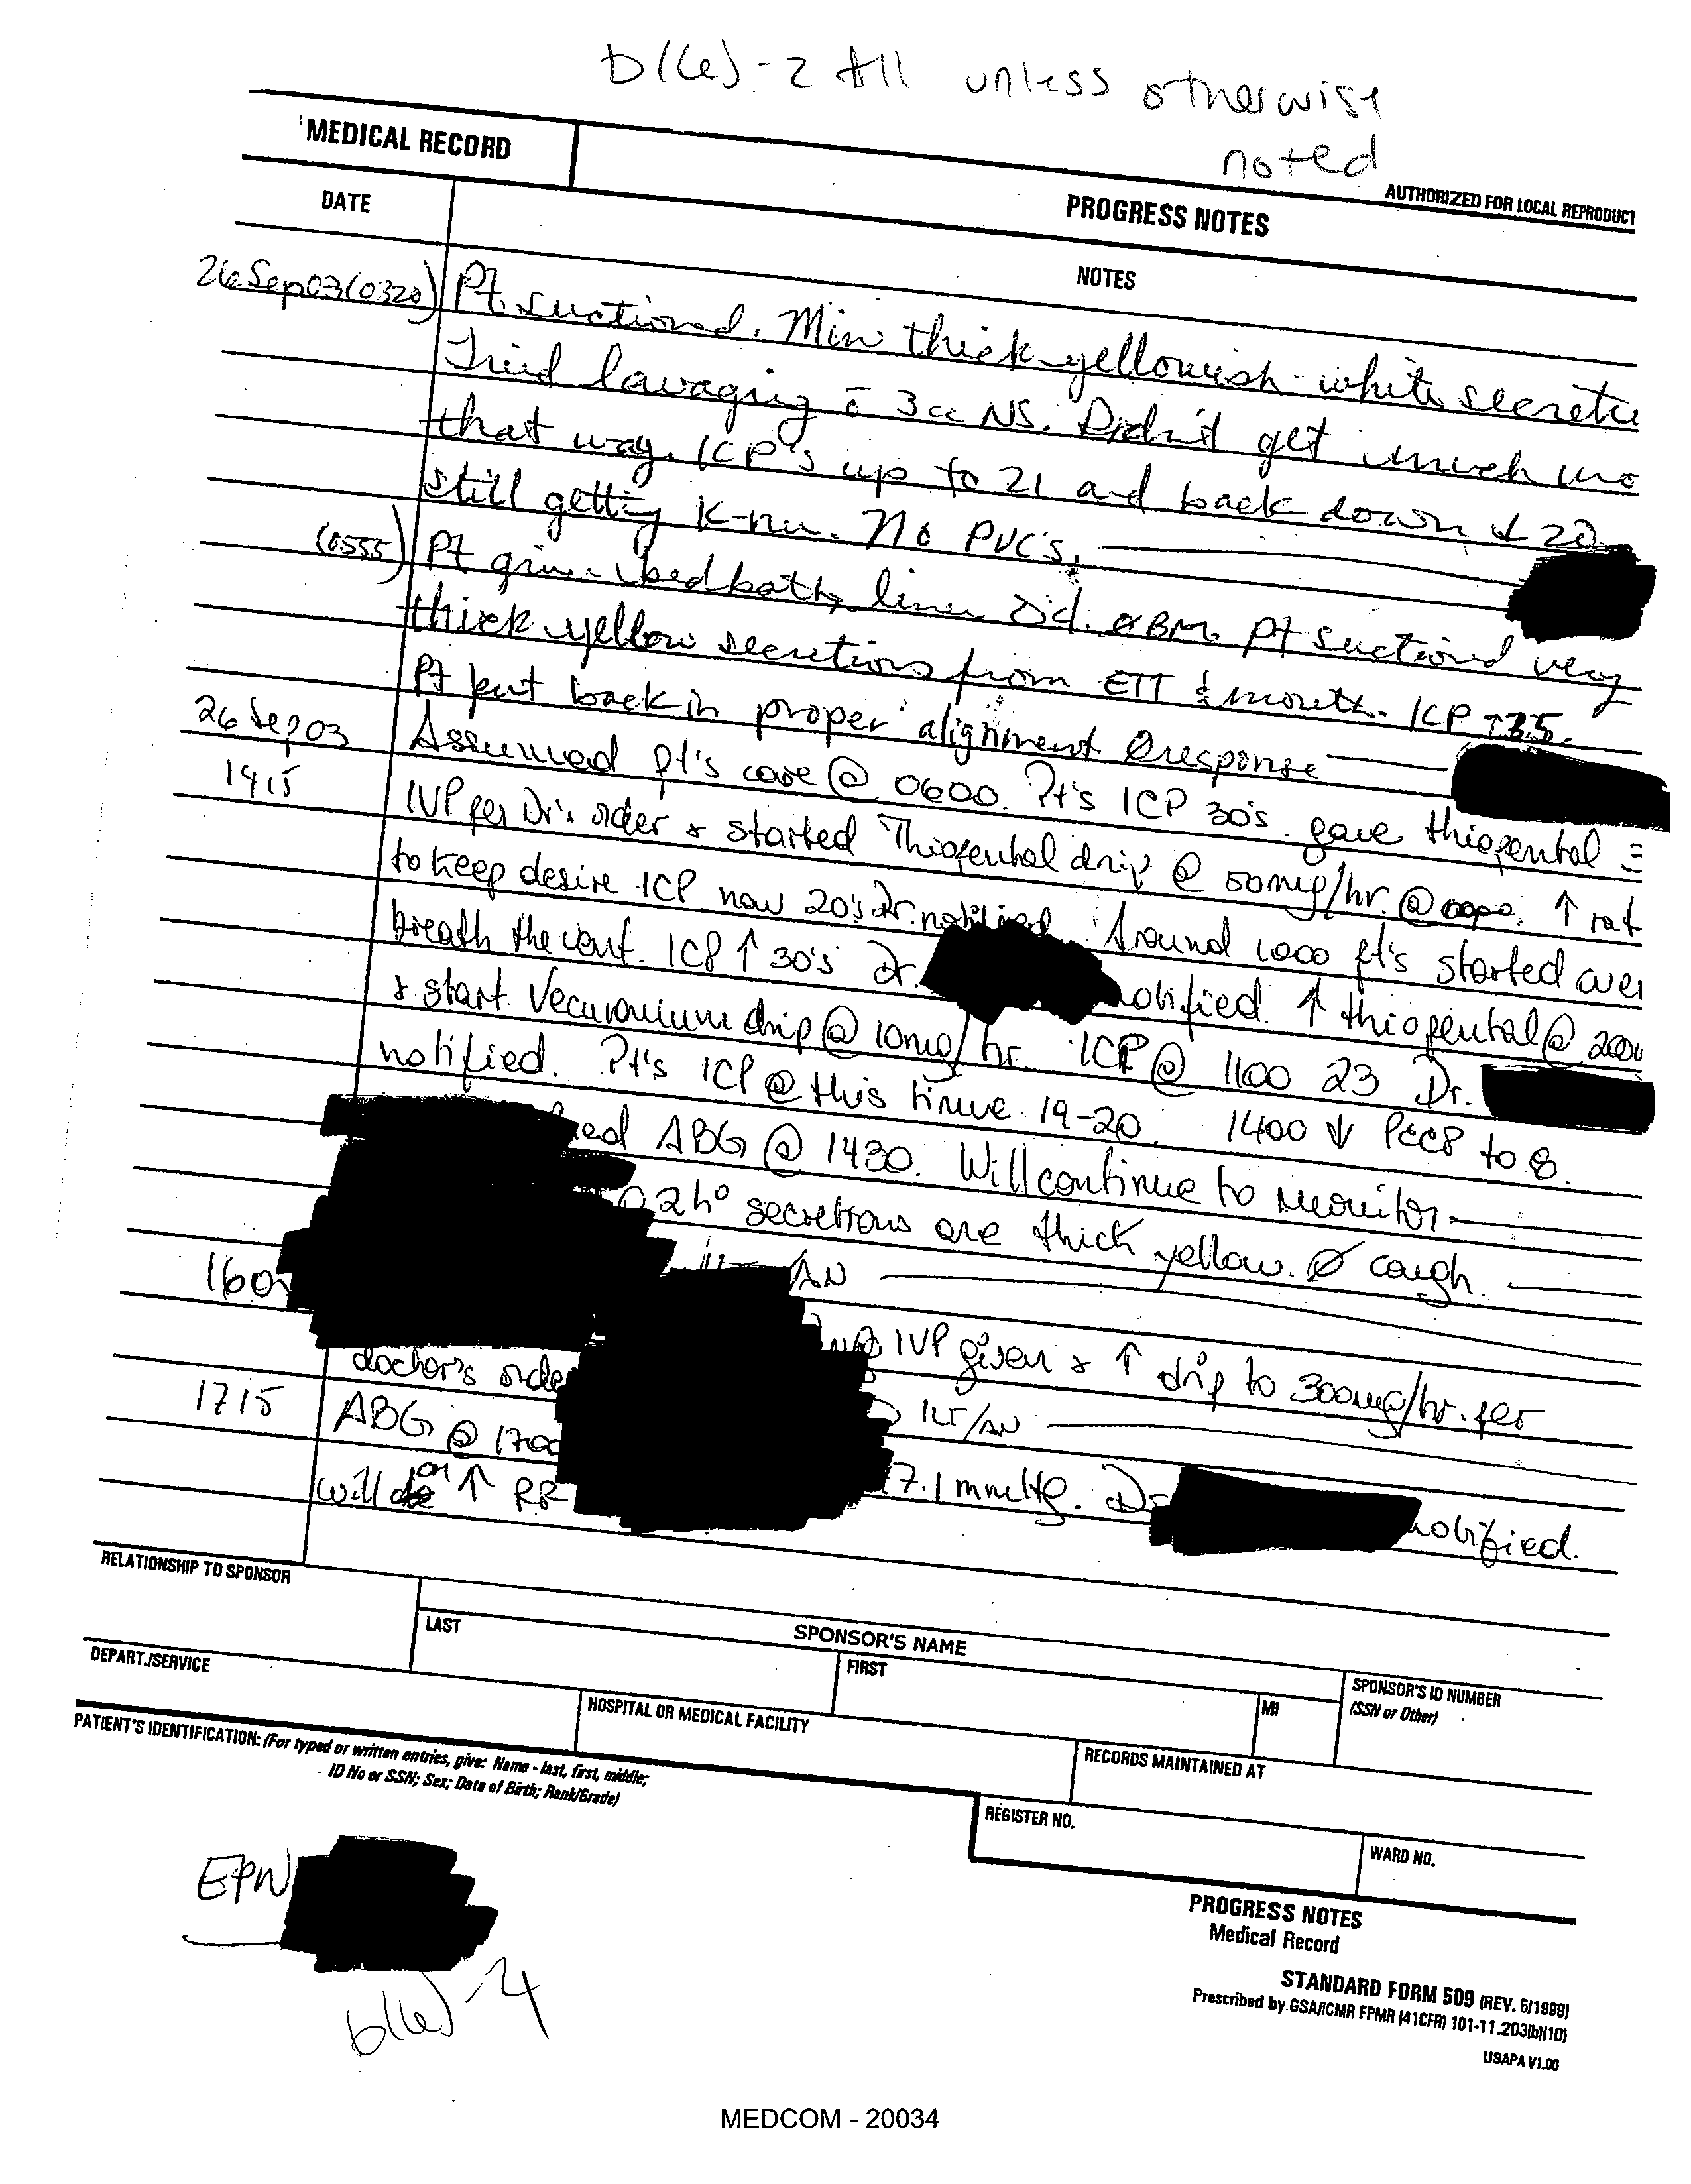 b(6)-2 All unless otherwise
noted
MEDICAL RECORD
AUTHORIZED FOR LOCAL REPRODUCT
PROGRESS NOTES
DATE
NOTES
26 Sep 03 (0320) Pt. suctioned. Min thick yellowish-white secretio
Tried lavaging c̄ 3cc NS. Didn't get much mo
that way. ICP's up to 21 and back down ↓ 20
still getting K-run. No PVC's.
(0555) Pt given bedbath, linen Δ'd. ∅ BM. Pt suctioned very
thick yellow secretions from ETT & mouth. ICP ↑35.
Pt put back in proper alignment ∅ response
26 Sep 03 Assumed pt's care @ 0600. Pt's ICP 30's. gave thiopental 3
1415 IVP per Dr's order & started Thiopental drip @ 50mg/hr. @ ↑ rat
to keep desire ICP now 20's Dr. notified. Around 1000 pt's started over
breath the vent. ICP ↑ 30's Dr. notified. ↑ thiopental @ 200
& start Vecuronium drip @ 10mg/hr. ICP @ 1100 23 Dr.
notified. Pt's ICP @ this time 19-20. 1400 ↓ PEEP to 8.
ABG @ 1430. Will continue to monitor
2h° secretions are thick yellow. ∅ cough.
/AN
160
IVP given & ↑ drip to 300mg/hr. per
doctor's orde
1LT/AN
1715 ABG @ 1700 7.1 mmHg. Dr notified.
will ↑ RR
RELATIONSHIP TO SPONSOR
SPONSOR'S NAME
LAST
FIRST
MI
SPONSOR'S ID NUMBER
(SSN or Other)
DEPART./SERVICE
HOSPITAL OR MEDICAL FACILITY
RECORDS MAINTAINED AT
PATIENT'S IDENTIFICATION: (For typed or written entries, give: Name - last, first, middle;
ID No or SSN; Sex; Date of Birth; Rank/Grade)
REGISTER NO.
WARD NO.
EPW
b(6)-4
PROGRESS NOTES
Medical Record
STANDARD FORM 509 (REV. 5/1999)
Prescribed by GSA/ICMR FPMR (41CFR) 101-11.203(b)(10)
USAPA V1.00
MEDCOM - 20034